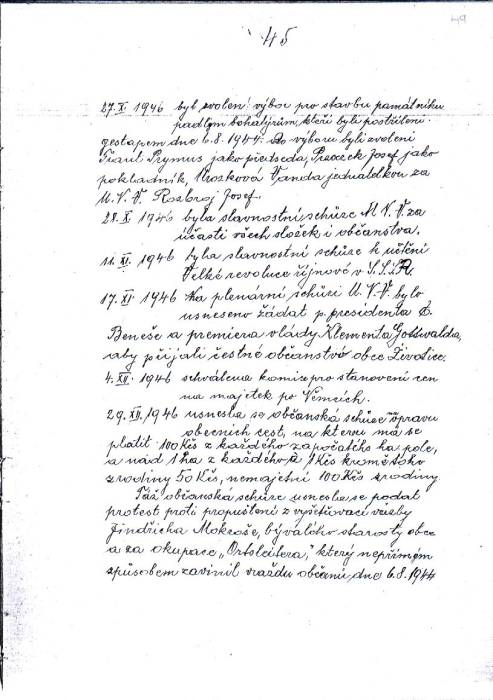 49
45
27. X. 1946 byl zvolen! výbor pro stavbu památníku
padlým bohatýrům, kteří byli postříleni
gestapem dne 6.8.1944. Do výboru byli zvoleni
Prymus jako předseda, Josef jako
pokladník, Vanda jednatelkou za
M. N. V. Rozbroj Josef.
28. X. 1946 byla slavnostní schůze M. N. V. za
účasti všech složek i občanstva.
11. XI. 1946 byla slavnostní schůze k uctění
Velké revoluce říjnové v S.S.S.R.
17. XI 1946 Na plenární schůzi M. N. V. bylo
usneseno žádat p. presidenta E.
Beneše a premiera vlády Klementa Gottwalda,
aby přijali čestné občanství obce Životice.
4. XII. 1946 schválena komise pro stanovení cen
na majetek po Němcích.
29. XII. 1946 usnesla se občanská schůze na opravu
obecních cest, na kterou má se
platit 100 Kčs z každého započatého ha pole,
a nád 1 ha z každého 1 Kčs kromě toho
z rodiny 50 Kčs, nemajetní 100 Kčs z rodiny
Táž občanská schůze usnesla se podat
protest proti propuštění z vyšetřovací vazby
Jindřicha Mokroše, bývalého starosty obce
a za okupace „Ortsleitera," který nepřímým
způsobem zavinil vraždu občanů, dne 6.8.1944